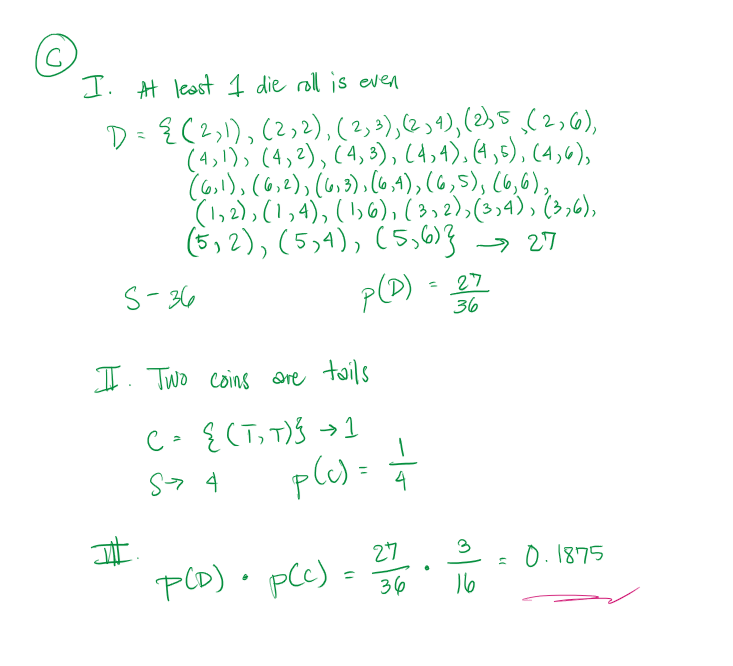 C
I. At least 1 die roll is even
D = {(2,1), (2,2), (2,3), (2,4), (2),5 ,(2,6),
(4,1), (4,2), (4,3), (4,4), (4,5), (4,6),
(6,1), (6,2), (6,3), (6,4), (6,5), (6,6),
(1,2), (1,4), (1,6), (3,2), (3,4), (3,6),
(5,2), (5,4), (5,6)} → 27
S - 36 p(D) = 27/36
II. Two coins are tails
C = {(T,T)} → 1
S → 4 p(C) = 1/4
III.
p(D) · p(C) = 27/36 · 3/16 = 0.1875